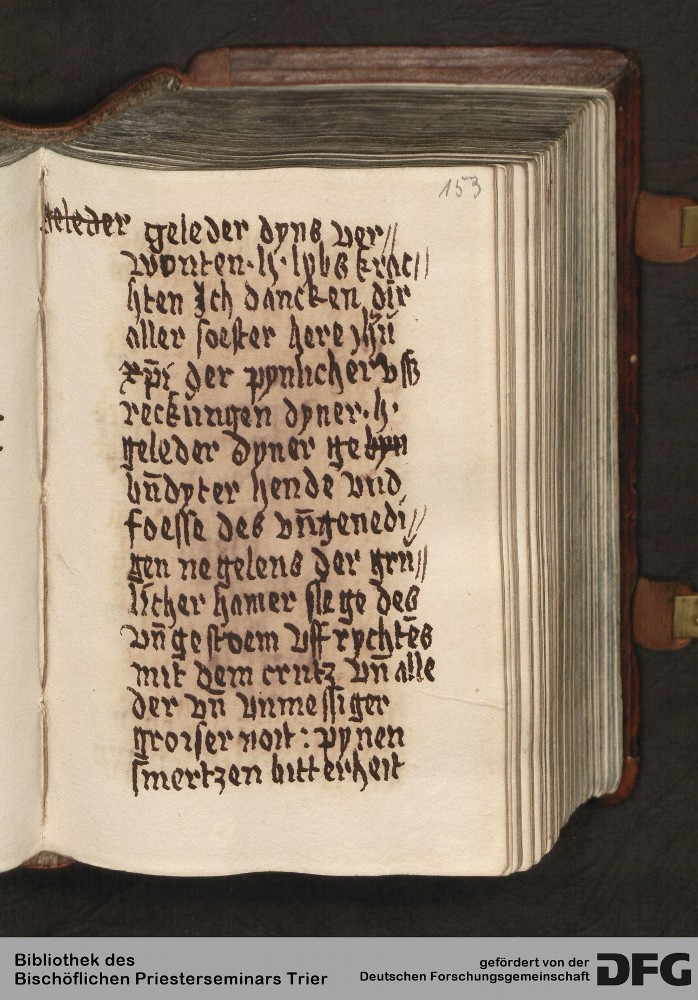 153
geleder geleder dyns ver//
wonten·h·lybs krac//
hten Ich dancken dir
aller soester here Jhū
xp̄i der pynlicher vſß
reckungen dyner·h·
geleder dyner ge byn
būdyter hende vnd
foeſſe des vn̄genedi//
gen negelens der gru//
licher hamer ſlege des
vn̄geſtoem vff rychtēs
mit dem crutz vn̄ alle
der vn̄ vnmeſſiger
groiſer noit: pynen
ſmertzen bitterheit
Bibliothek des
Bischöflichen Priesterseminars Trier
gefördert von der
Deutschen Forschungsgemeinschaft DFG